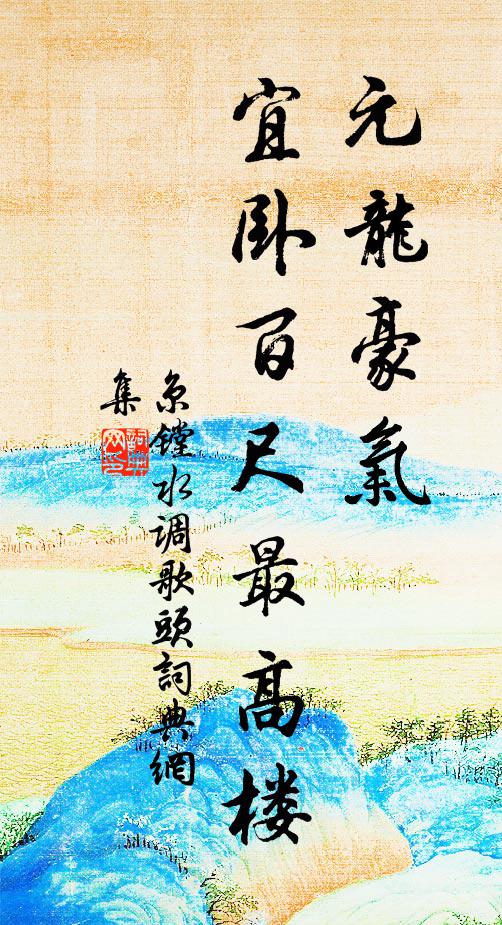 元龍豪氣
宜卧百尺最高楼
京鏜水调歌頭詞典網
集